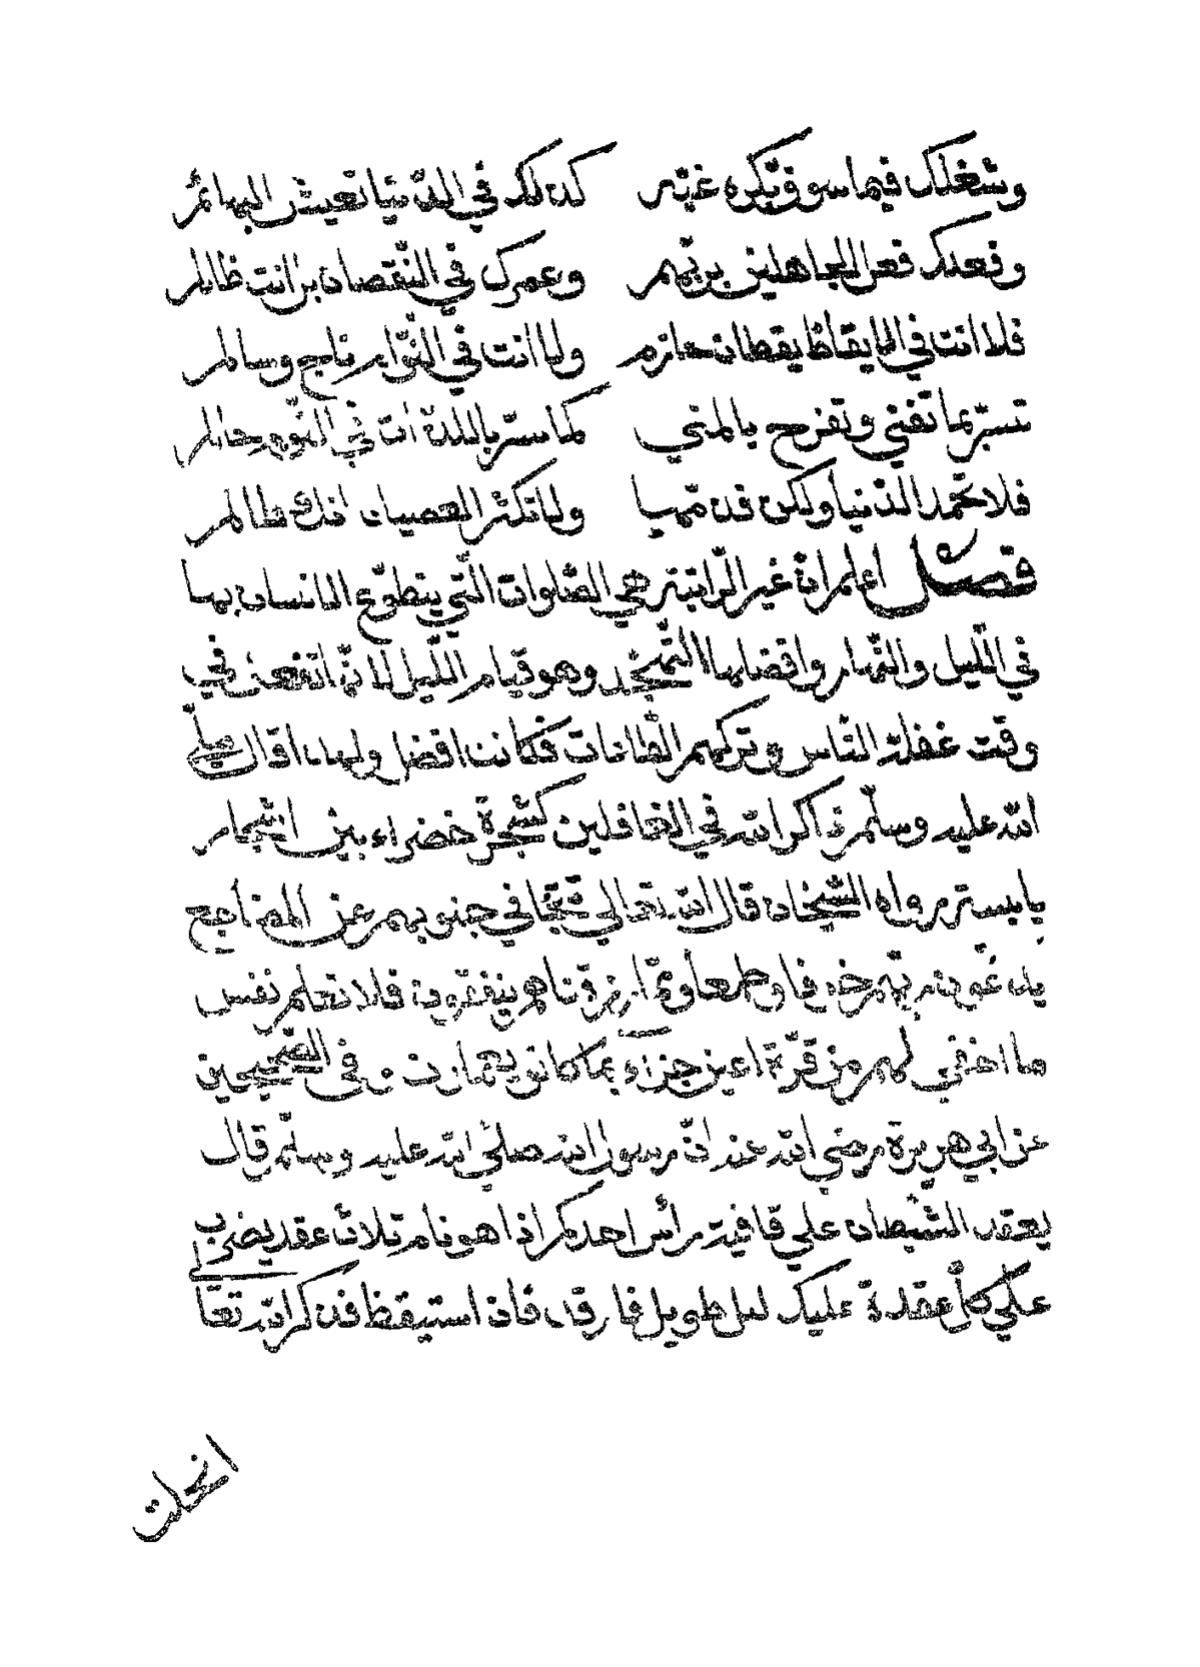 وشغلك فيما سوف تكره غبّه كذلك في الدّنيا تعيش البهائم
وفعلك فعل الجاهلين بربّهم وعمرك في النّقصان بل انت ظالم
فلا انت في الايقاظ يقظان حازم ولا انت في النّوّام ناج وسالم
تسرّ بما تفنى وتفرح بالمنى كما سرّ باللذات في النّوم حالم
فلا تحمد الدّنيا ولكن فذمّها ولا تكثر العصيان انك ظالم
فصل اعلم ان غير الرّاتبة هي الصّلوات الّتي يتطوّع الانسان بها
في اللّيل والنّهار وافضلها التّهجّد وهو قيام اللّيل لانّها تفعل في
وقت غفلة النّاس وتركهم الطّاعات فكانت افضل ولهذا قال صلّى
الله عليه وسلّم ذاكر الله في الغافلين كشجرة خضراء بين اشجار
يابسة رواه الشّيخان قال الله تعالى تتجافى جنوبهم عن المضاجع
يدعون ربّهم خوفا وطمعا وممّا رزقناهم ينفقون فلا تعلم نفس
ما اخفي لهم من قرّة اعين جزاء بما كانو يعملون وفى الصّحيحين
عن ابي هريرة رضي الله عنه انّ رسول الله صلّى الله عليه وسلّم قال
يعقد الشّيطان على قافية رأس احدكم اذا هو نام ثلاث عقد يضرب
على كلّ عقدة عليك ليل طويل فارقد فاذا استيقظ فذكر الله تعالى
انحلت